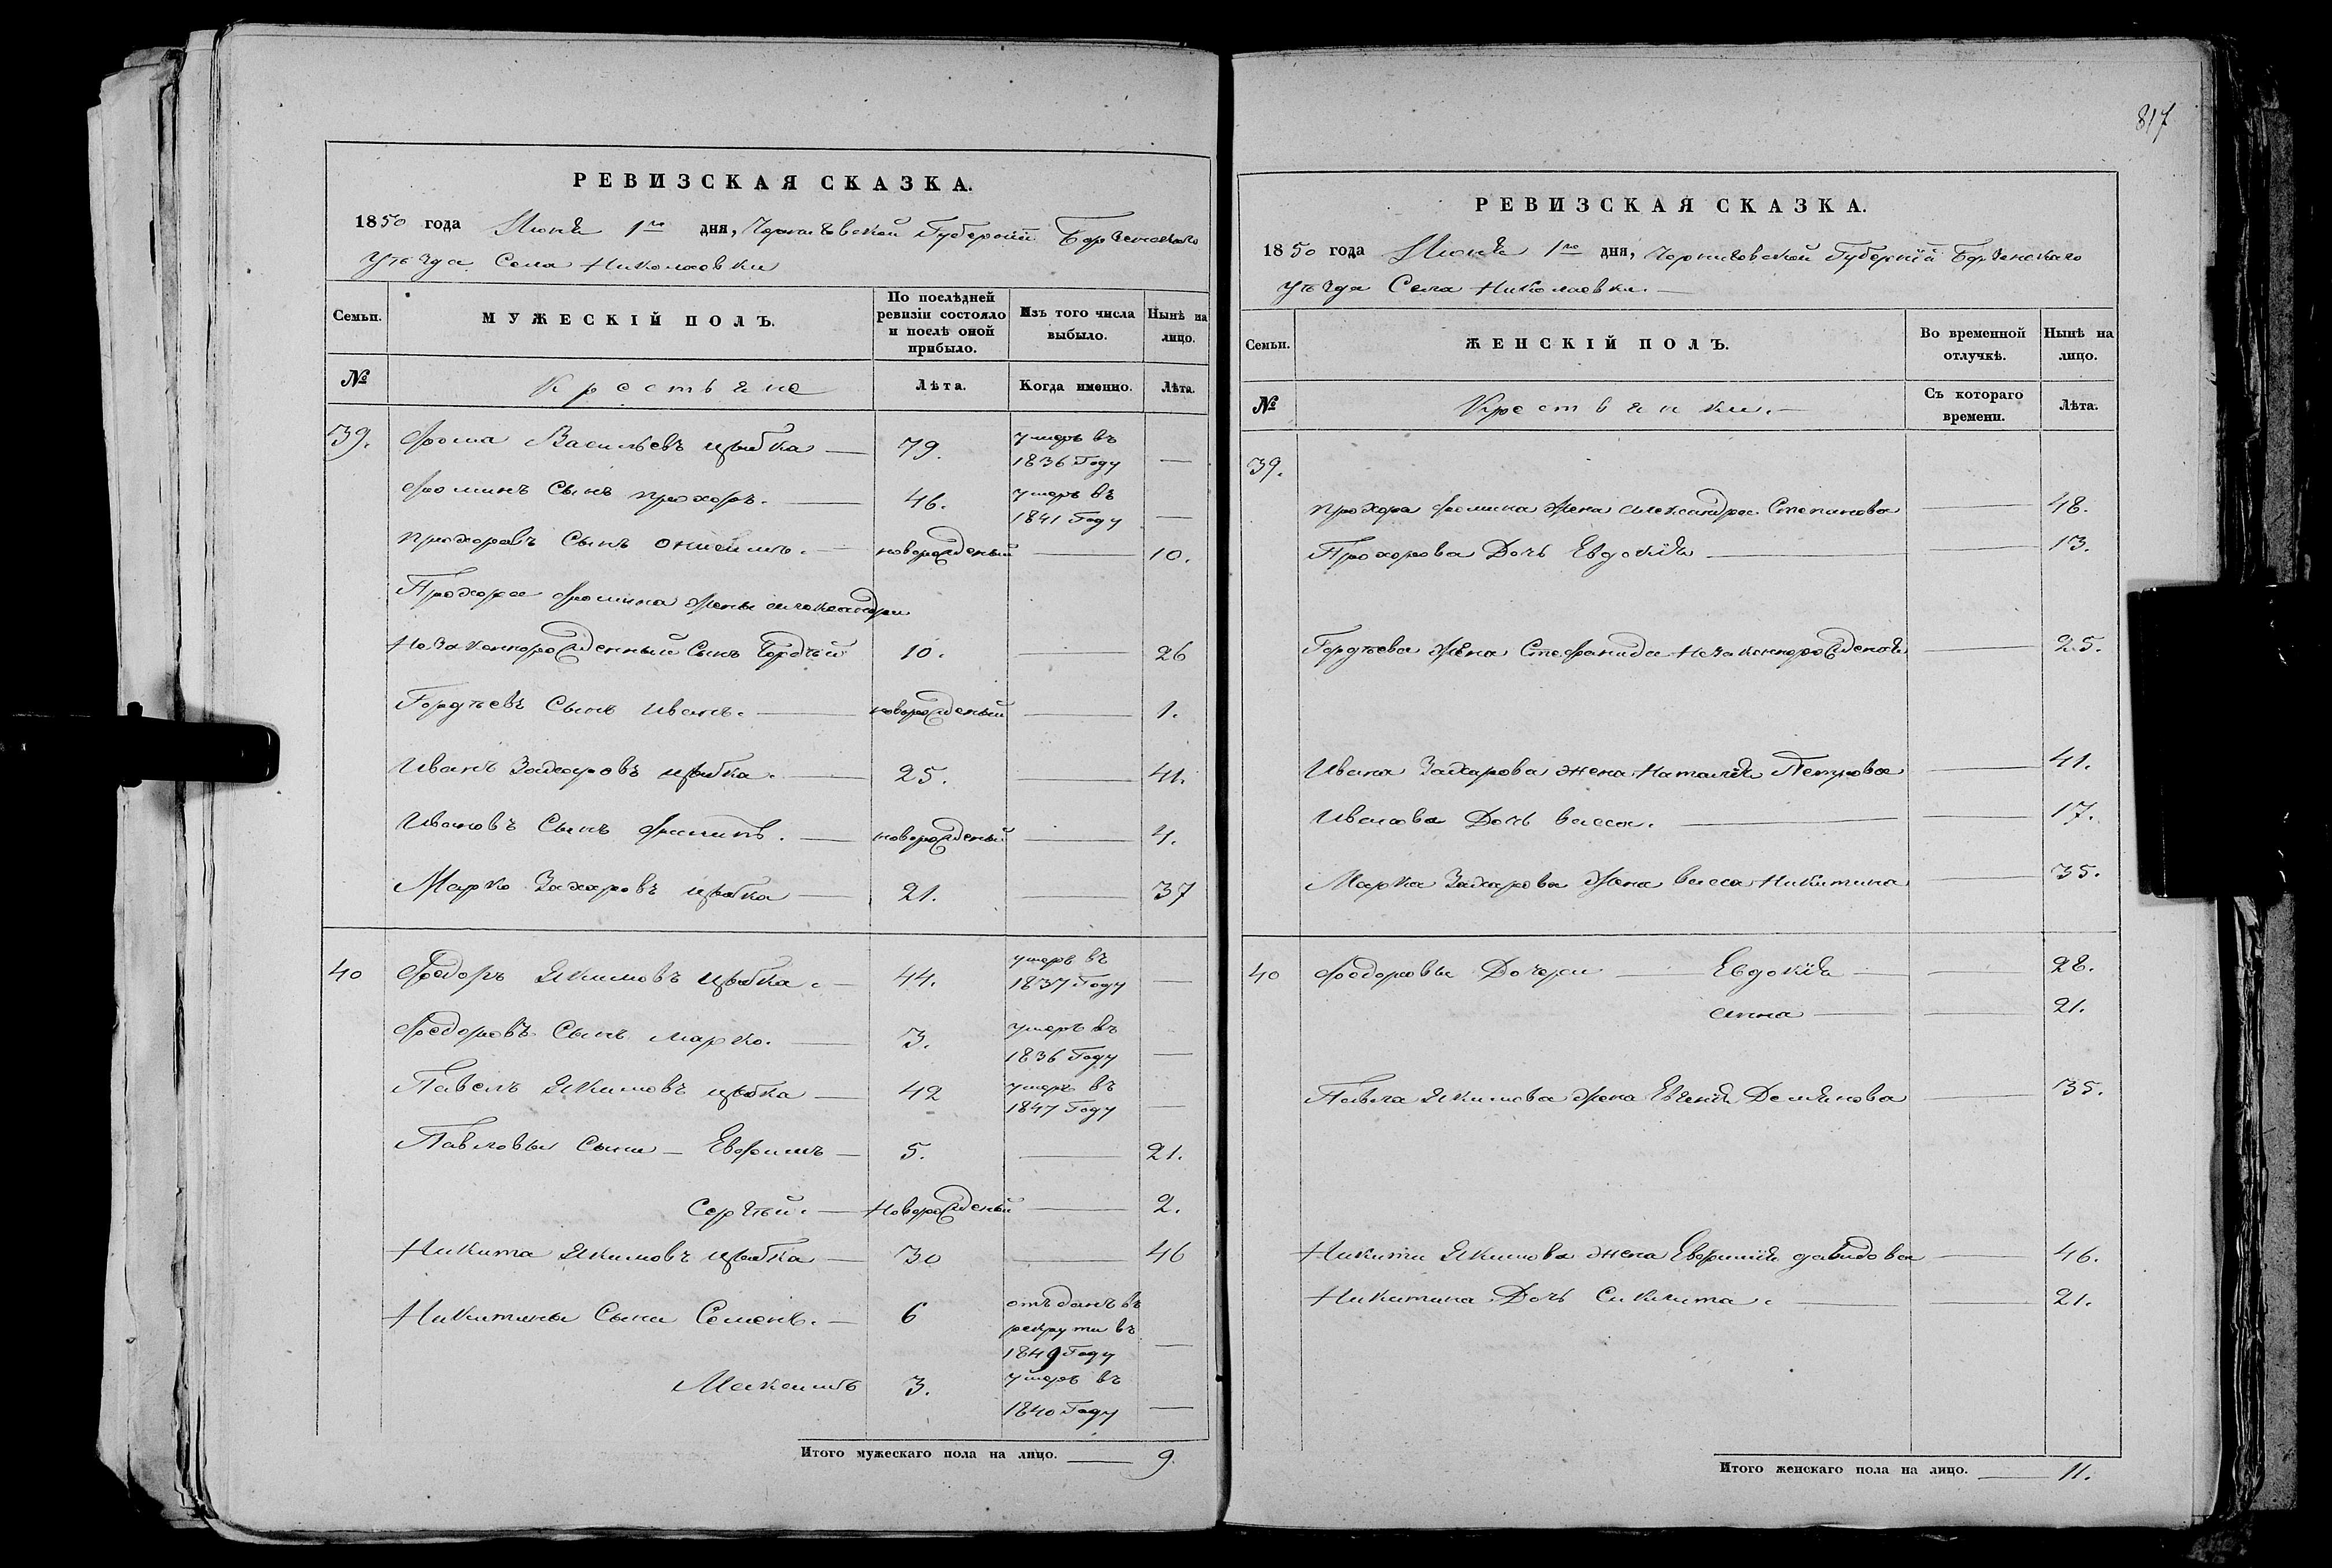 РЕВИЗСКАЯ СКАЗКА.
1850 года Июня 1го дня, Черниговской Губерніи Борзенского
уѣзда Села Николаевки
Семьи. МУЖЕСКІЙ ПОЛЪ. По послѣдней ревизіи состояло и послѣ оной прибыло. Изъ того числа выбыло. Нынѣ на лицо.
№ Крестьяне Лѣта. Когда именно. Лѣта.
39. Фома Васильевъ Цыбка — 79. умеръ въ 1836 Году —
Фоминъ Сынъ Прохоръ. — 46. умеръ въ 1841 Году —
Прохоровъ Сынъ Онисимъ. — новорожденый — 10.
Прохора Фомина Жены Александри
Незаконнорожденный Сынъ Гордѣй 10. — 26
Гордѣевъ Сынъ Иванъ. — новорожденый — 1.
Иванъ Захаровъ Цыбка. — 25. — 41.
Ивановъ Сынъ . — новорожденый — 4.
Марко Захаровъ Цыбка — 21. — 37
40 Федоръ Якимовъ Цыбка. — 44. умеръ въ 1837 Году —
Федоровъ Сынъ Марко. — 3. умеръ въ 1836 Году —
Павелъ Якимовъ Цыбка — 42 умеръ въ 1847 Году —
Павловы Сыни — Евфимъ — 5. — 21.
Сергѣй. — Новорожденый — 2.
Никита Якимовъ Цыбка — 30 — 46
Никитины Сыни Семенъ. — 6 отъданъ въ рекрути въ 1849 Году —
Максимъ 3. умеръ въ 1840 Году —
Итого мужескаго пола на лицо. — 9.
817
РЕВИЗСКАЯ СКАЗКА.
1850 года Июня 1го дня, Черниговской Губерніи Борзенскаго
уѣзда Села Николаевки. —
Семьи. ЖЕНСКІЙ ПОЛЪ. Во временной отлучкѣ. Нынѣ на лицо.
№ Крестьянки. — Съ котораго времени. Лѣта.
39.
Прохора Фомина Жена Александра Степанова — 48.
Прохорова Дочь Евдокія — 13.
Гордѣева Жена Стефанида Незаконнорожденая — 25.
Ивана Захарова жена Наталія Петрова — 41.
Иванова Дочь Васса. — 17.
Марка Захарова Жена Васса Никитина — 35.
40 Федоровы Дочери — Евдокія — 28.
Анна — 21.
Павла Якимова Жена Евгенія Демянова — 35.
Никити Якимова жена Евфимія Давидова — 46.
Никитина Дочь . — 21.
Итого женскаго пола на лицо. — 11.